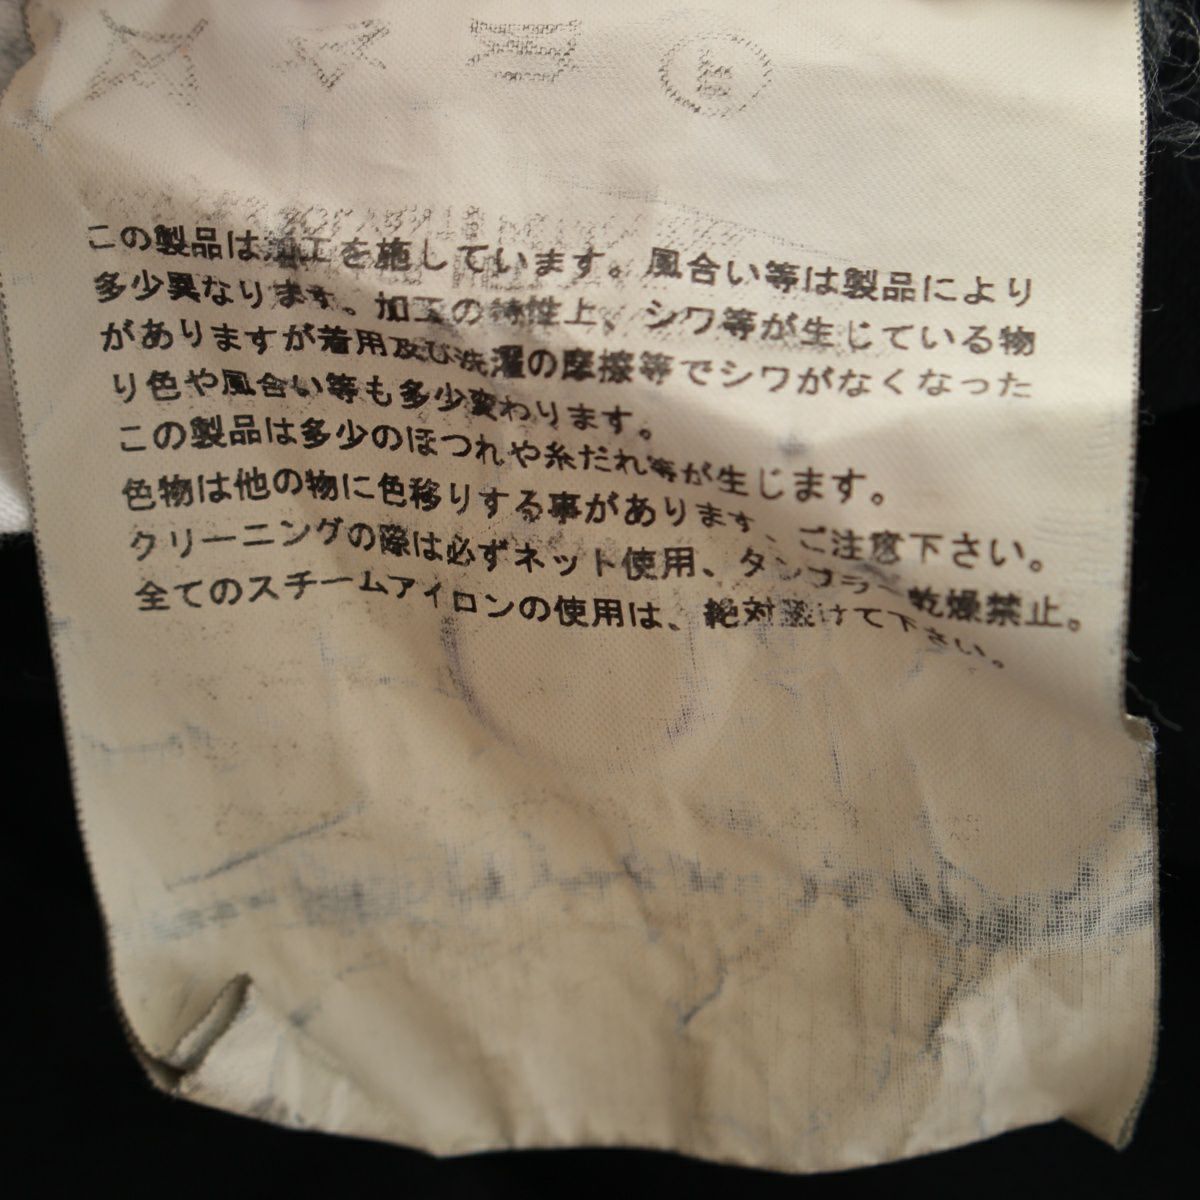 この製品は加工を施しています。風合い等は製品により
多少異なります。加工の特性上、シワ等が生じている物
がありますが着用及び洗濯の摩擦等でシワがなくなった
り色や風合い等も多少変わります。
この製品は多少のほつれや糸だれ等が生じます。
色物は他の物に色移りする事があります、ご注意下さい。
クリーニングの際は必ずネット使用、タンブラー乾燥禁止。
全てのスチームアイロンの使用は、絶対避けて下さい。